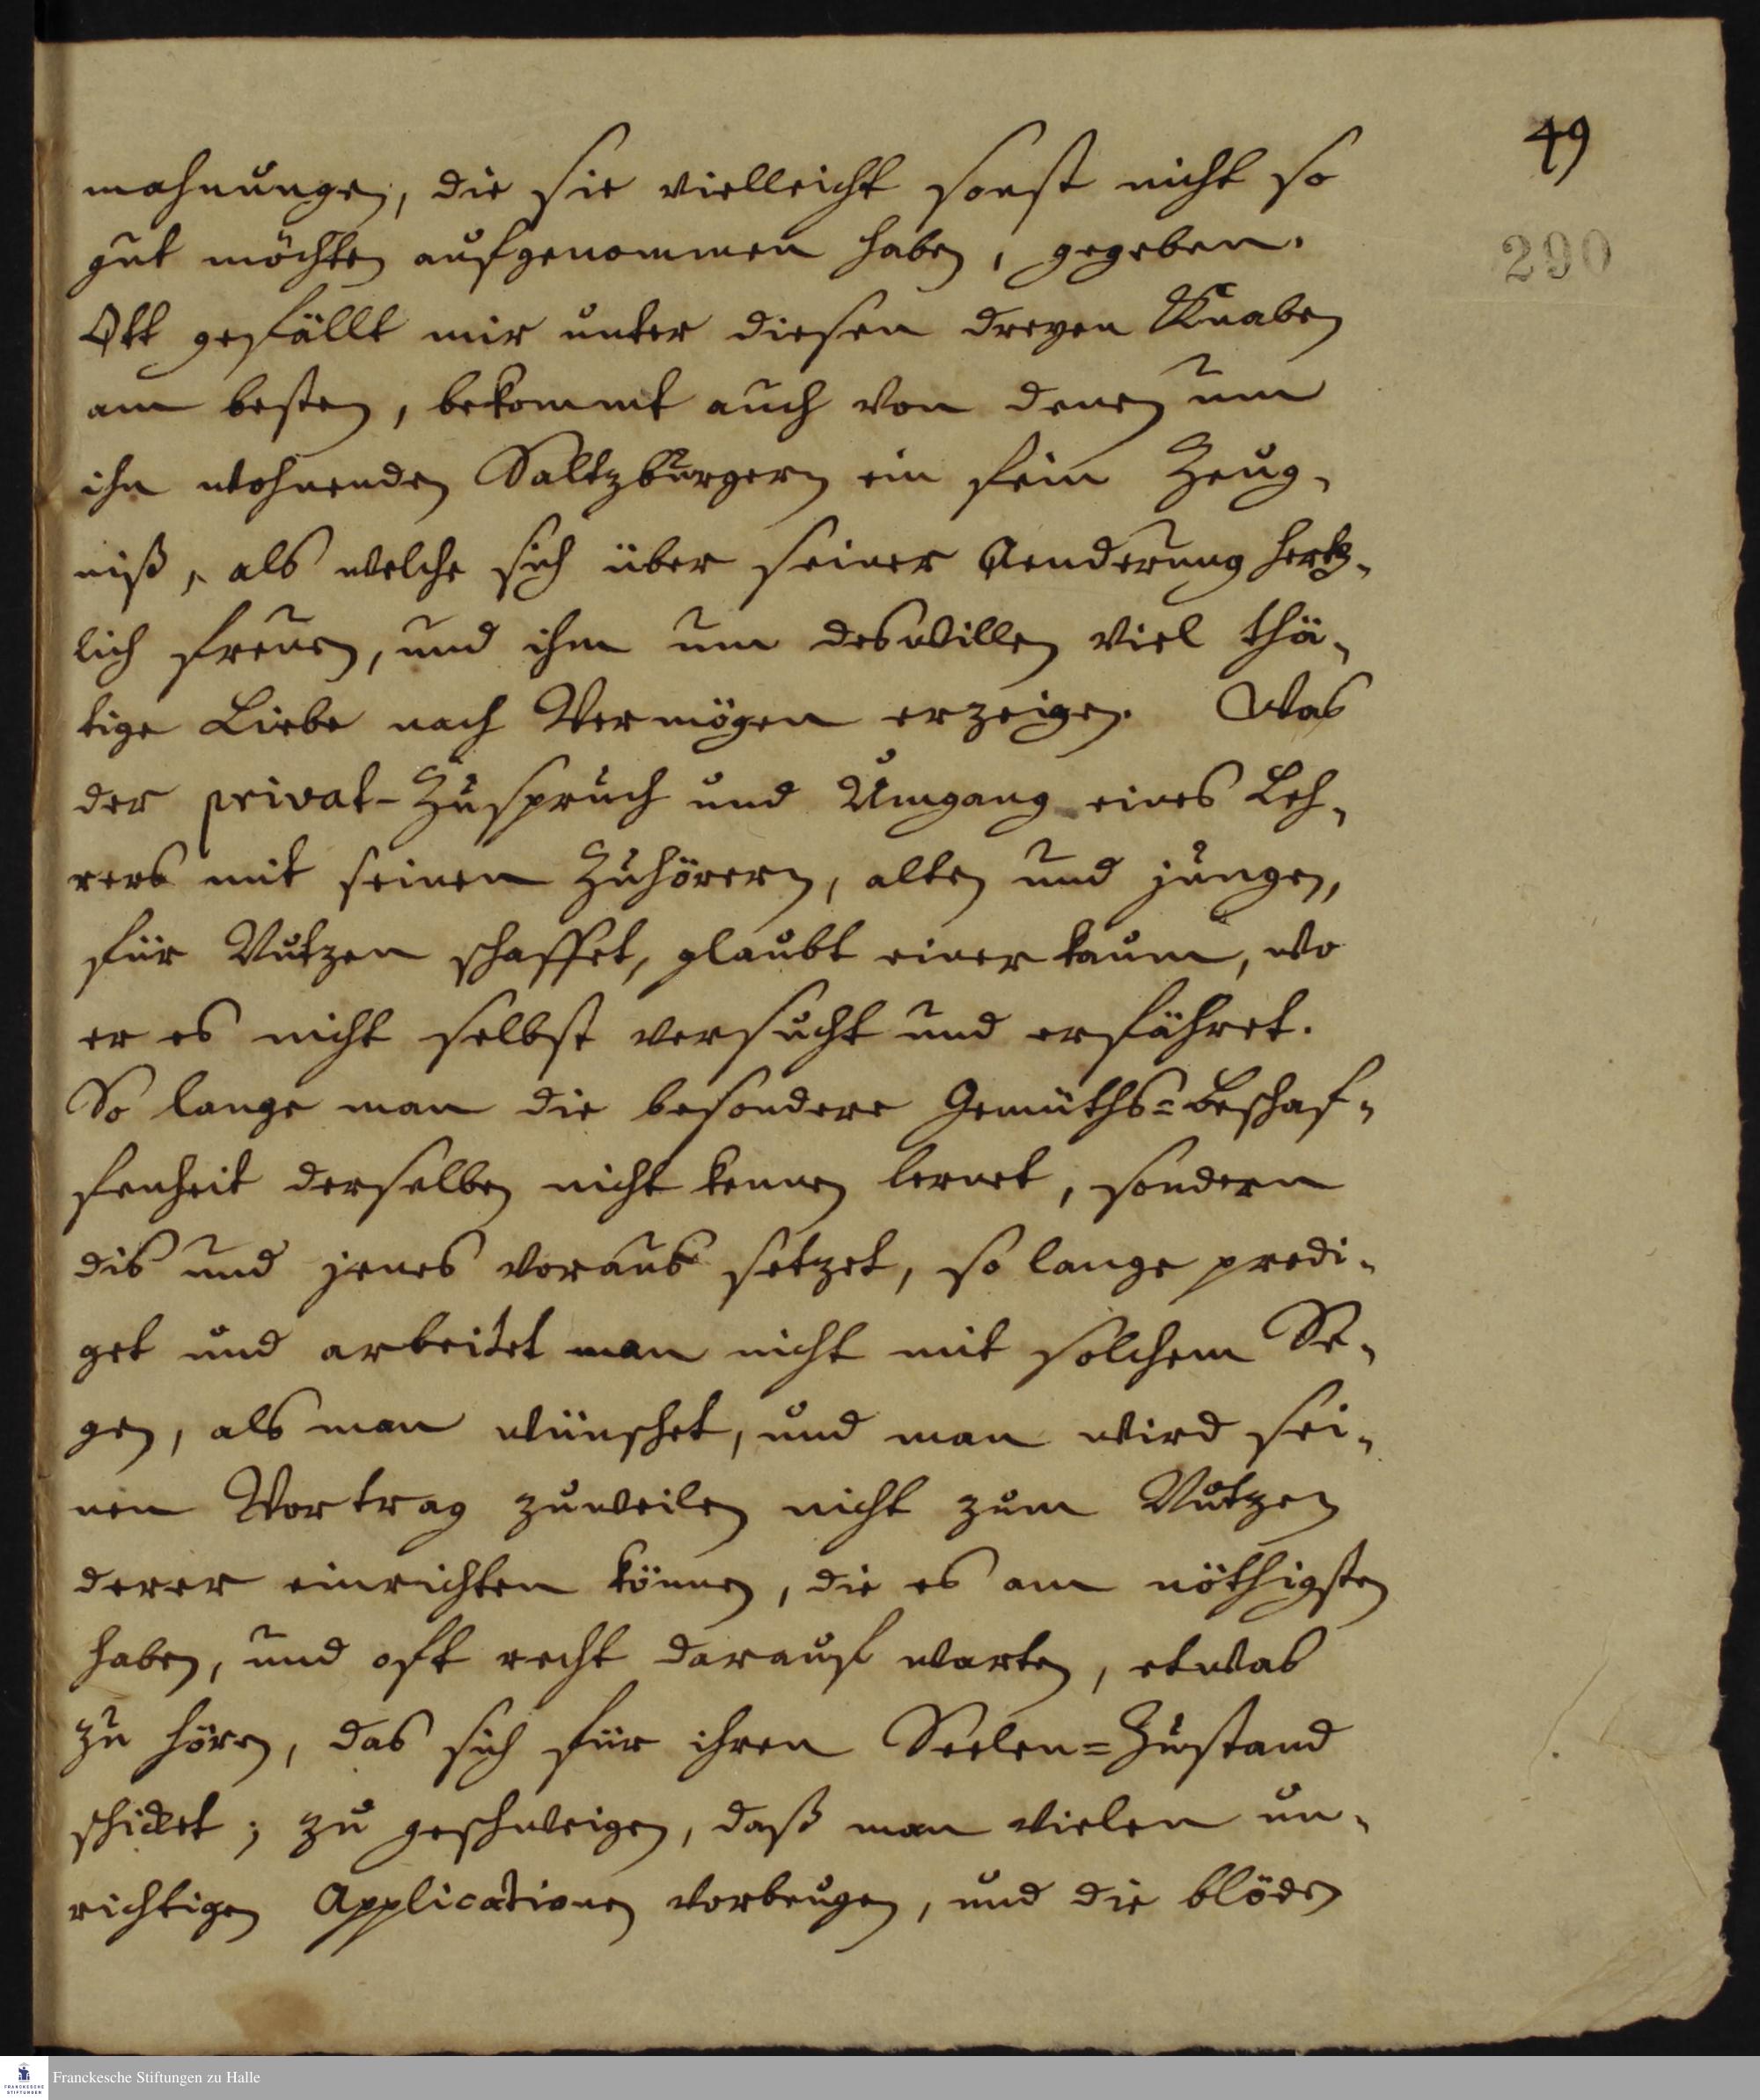 49
290
mahnungen, die sie vielleicht sonst nicht so
gut möchten aufgenommen haben, gegeben.
Ott gefällt mir unter diesen dreyen Knaben
am besten, bekommt auch von denen um
ihn wohnenden Saltzburgern ein fein Zeug-
niß, als welche sich über seiner Aenderung hertz-
lich freuen, und ihm um deswillen viel thä-
tige Liebe nach Vermögen erzeigen. Was
der privat-Zuspruch und Umgang eines Leh-
rers mit seinen Zuhörern, alten und jungen,
für Nutzen schaffet, glaubt einer kaum, wo
er es nicht selbst versucht und erfähret.
So lange man die besondere Gemüths=Beschaf-
fenheit derselben nicht kennen lernet, sondern
dis und jenes voraus setzet, so lange predi-
get und arbeitet man nicht mit solchem Se-
gen, als man wünschet, und man wird sei-
nen Vortrag zuweilen nicht zum Nutzen
derer einrichten können, die es am nöthigsten
haben, und oft recht darauf warten, etwas
zu hören, das sich für ihren Seelen=Zustand
schicket; zu geschweigen, daß man vielen un-
richtigen Applicationen vorbeugen, und die blöden
Franckesche Stiftungen zu Halle
FRANCKESCHE
STIFTUNGEN